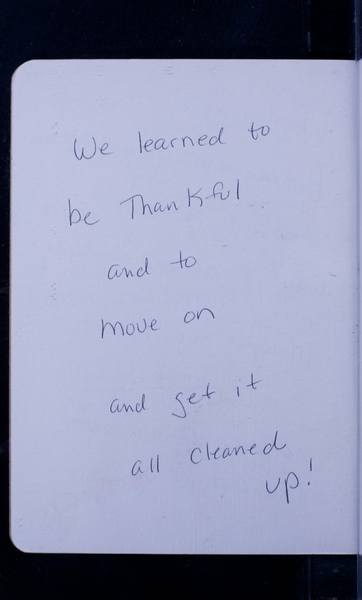 We learned to
be Thankful
and to
move on
and get it
all cleaned
up!